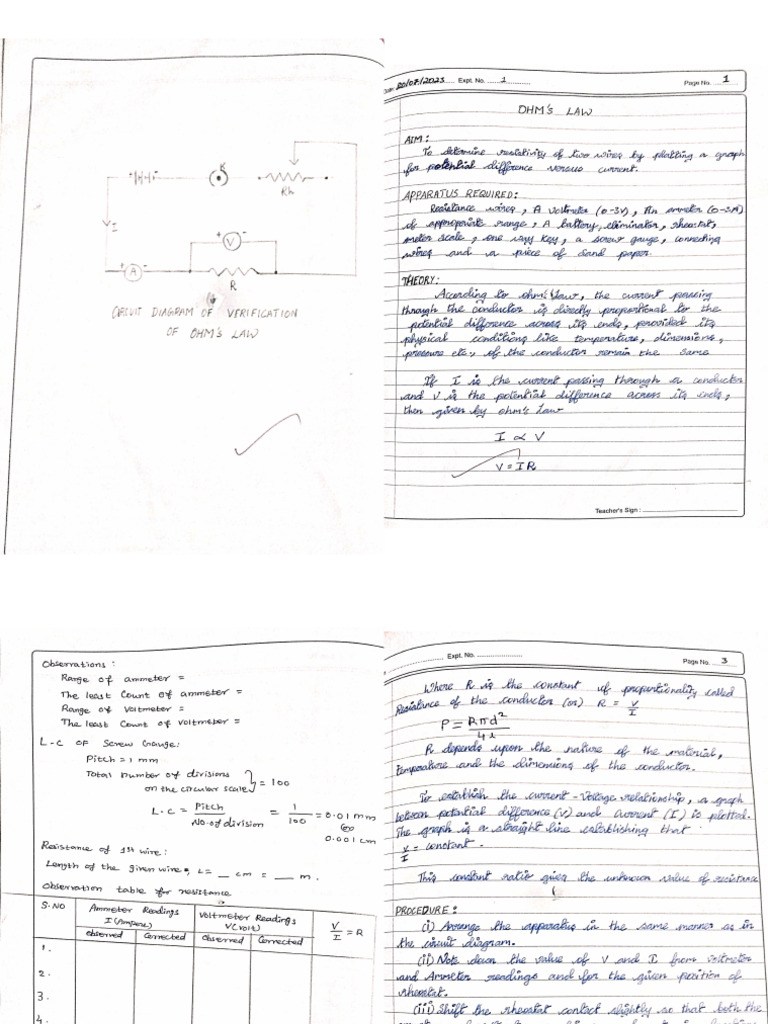 K
Rh
I
+ V -
+ A -
R
CIRCUIT DIAGRAM OF VERIFICATION
OF OHM'S LAW
Date 20/07/2023 Expt. No. 1 Page No. 1
OHM'S LAW
AIM:
To determine resistivity of two wires by plotting a graph
for potential difference versus current.
APPARATUS REQUIRED:
Resistance wires, A voltmeter (0-3V), An ammeter (0-3A)
of appropriate range, A battery, eliminator, rheostat,
meter scale, one way key, a screw gauge, connecting
wires and a piece of Sand paper.
THEORY:
According to ohm's law, the current passing
through the conductor is directly proportional to the
potential difference across its ends, provided its
physical conditions like temperature, dimensions,
pressure etc, of the conductor remain the same
If I is the current passing through a conductor
and V is the potential difference across its ends,
then given by ohm's Law
I ∝ V
V = IR
Teacher's Sign :
Observations :
Range of ammeter =
The least Count of ammeter =
Range of Voltmeter =
The least Count of Voltmeter =
L.C OF Screw Gauge:
Pitch = 1 mm
Total number of divisions
on the circular scale } = 100
L.C = Pitch / No.of division = 1/100 = 0.01 mm
(or)
0.001 cm
Resistance of 1st wire:
Length of the given wire, L= _ cm = __ m.
Observation table for resistance
S.NO Ammeter Readings I (Ampere) Voltmeter Readings V(volt) V/I = R
Observed Corrected Observed Corrected
1.
2.
3.
4.
Expt. No. Page No. 3
Where R is the constant of proportionality called
Resistance of the conductor (or) R = V/I
P = Rπd²/4l
R depends upon the nature of the material,
temperature and the dimensions of the conductor.
To establish the current-Voltage relationship, a graph
between potential difference (V) and current (I) is plotted.
The graph is a straight line establishing that
V/I = constant.
This constant ratio gives the unknown value of resistance
PROCEDURE:
(i) Arrange the apparatus in the same manner as in
the circuit diagram.
(ii) Note down the value of V and I from voltmeter
and Ammeter readings and for the given position of
rheostat.
(iii) Shift the rheostat contact slightly so that both the